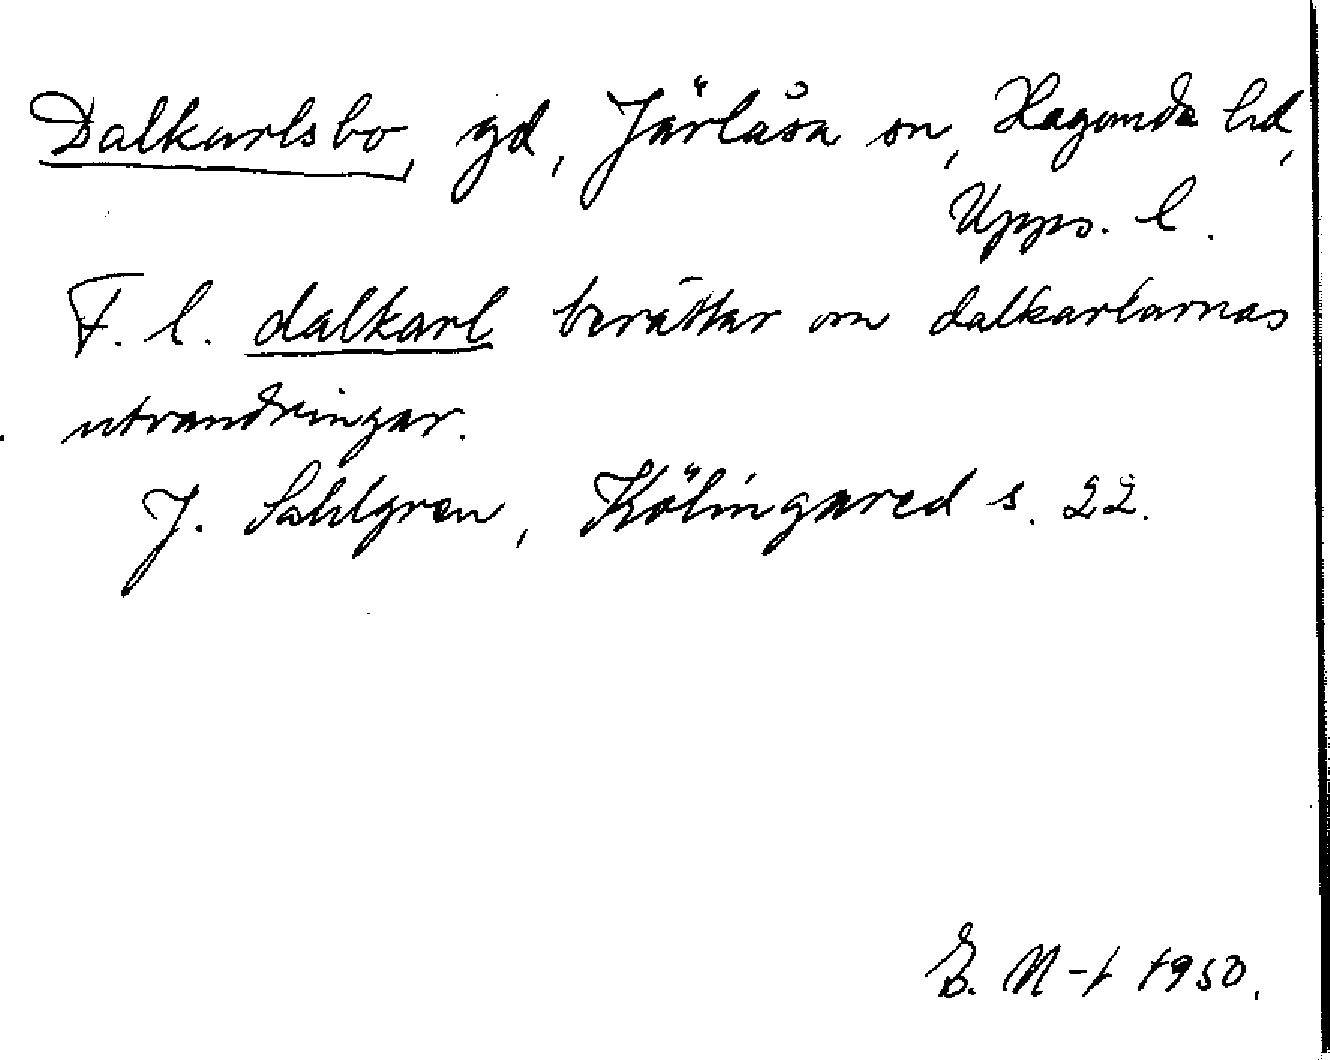 Dalkarlsbo, gd, Järlåsa sn, Hagunda hd,
Upps. l.
F. l. dalkarl berättar om dalkarlarnas
utvandringar.
J. Sahlgren, Kölingared s. 22.
E. N-t 1950.